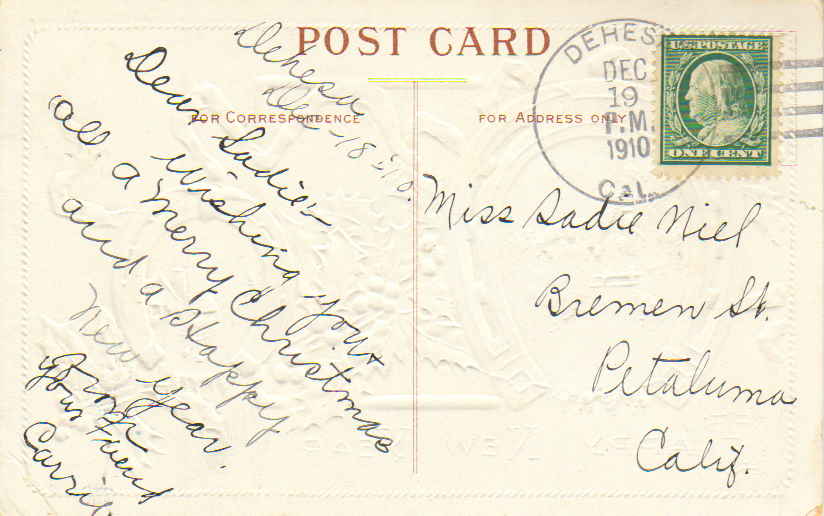 POST CARD
FOR CORRESPONDENCE
FOR ADDRESS ONLY
Dehesa
Dec - 18 - 10.
Dear Sadie -
Wishing you +
all a Merry Christmas
and a Happy
New Year.
From
your Friend
Carrie
DEHES
DEC
19
P.M.
1910
CAL.
U.S. POSTAGE
ONE CENT
Miss Sadie Niel
Bremen St.
Petaluma
Calif.
NEW YEAR